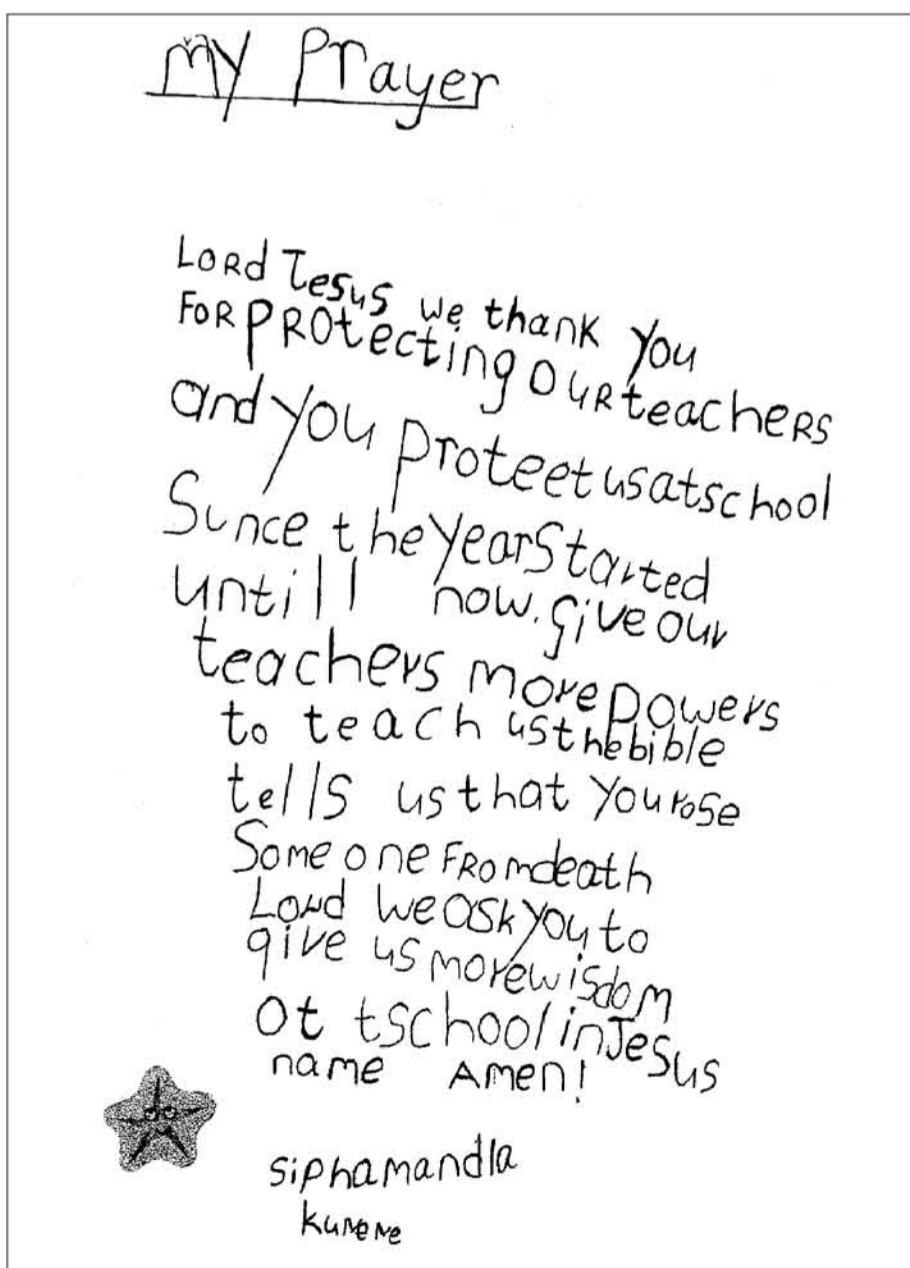 My Prayer
Lord Jesus we thank you
For protecting our teachers
and you proteet us at school
Since the year started
untill now. give our
teachers more powers
to teach us the bible
tells us that you rose
Some one From death
Lord we ask you to
give us more wisdom
ot tschool in Jesus
name Amen!
siphamandla
kunene